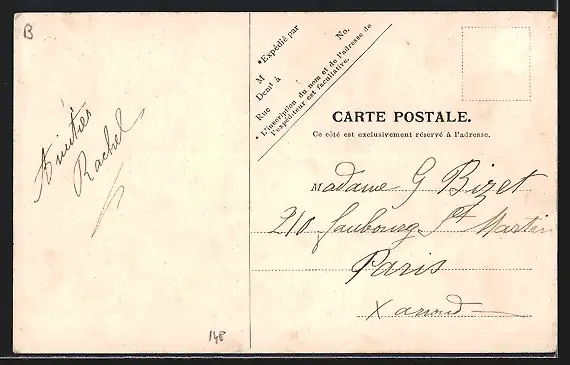 B
Amitiés
Rachel
*Expédié par
M No.
Demt à
Rue
* L'inscription du nom et de l'adresse de
l'expéditeur est facultative.
CARTE POSTALE.
Ce côté est exclusivement réservé à l'adresse.
Madame G Bizet
210 faubourg St Martin
Paris
X arrond
148